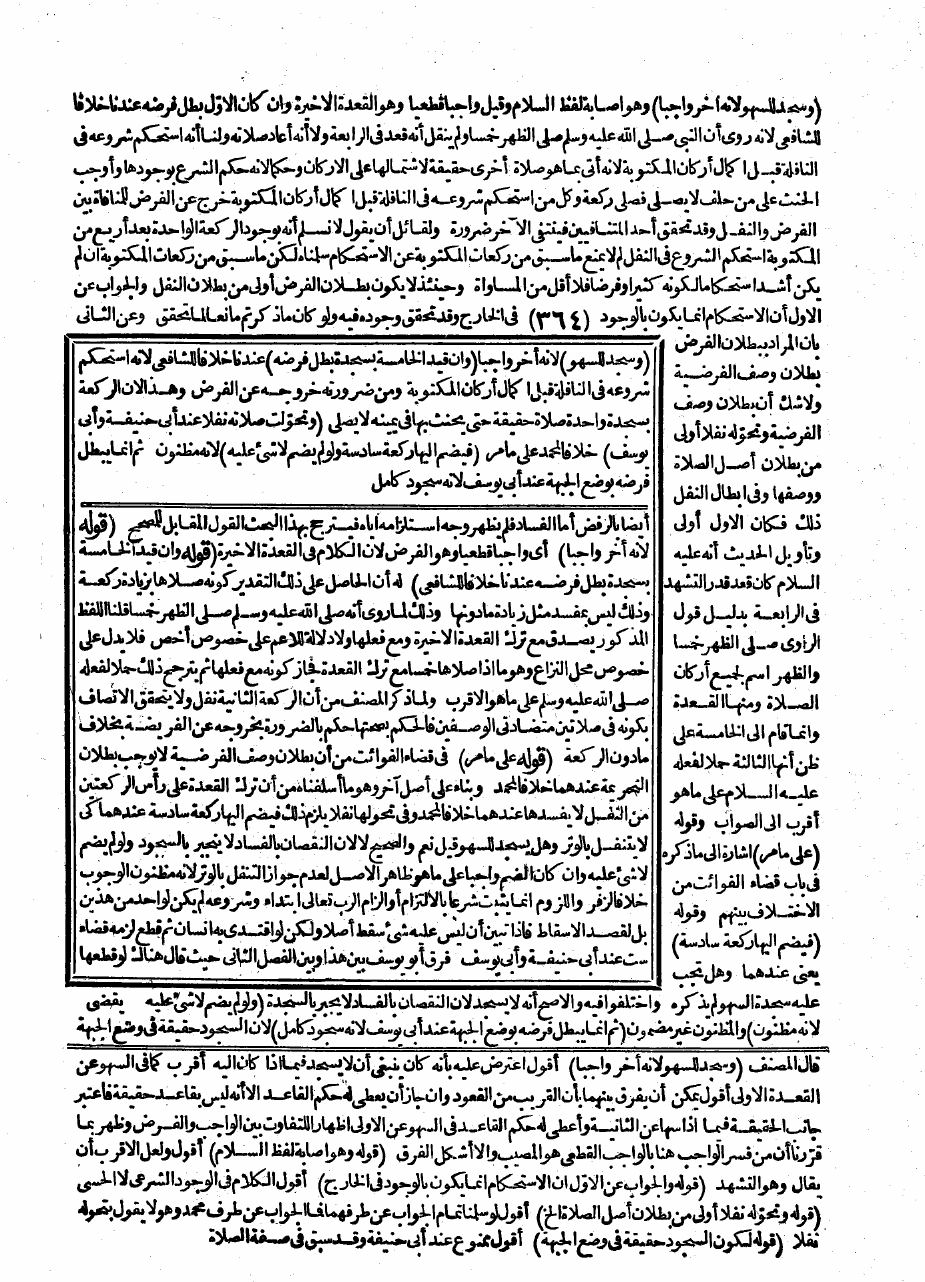 (وسجد للسهو لانه أخر واجبا) وهو اصابة لفظ السلام وقيل واجبا قطعيا وهو القعدة الاخيرة وان كان الاول بطل فرضه عندنا خلافا
للشافعى لانه روى أن النبى صلى الله عليه وسلم صلى الظهر خمسا ولم ينقل أنه قعد فى الرابعة ولا أنه أعاد صلاته ولنا أنه استحكم شروعه فى
النافلة قبل ا كمال أركان المكتوبة لانه أتى بما هو صلاة أخرى حقيقة لاشتمالها على الاركان وحكما لانه حكم الشرع بوجودها وأوجب
الحنث على من حلف لا يصلى فصلى ركعة وكل من استحكم شروعه فى النافلة قبل ا كمال أركان المكتوبة خرج عن الفرض للمنافاة بين
الفرض والنفل وقد تحقق أحد المتنافيين فينتفى الآخر ضرورة ولقائل أن يقول لا نسلم أنه بوجود الركعة الواحدة بعد أربع من
المكتوبة استحكم الشروع فى النفل لم لا يمنع ما سبق من ركعات المكتوبة عن الاستحكام سلمناه لكن ما سبق من ركعات المكتوبة ان لم
يكن أشد استحكاما لكونه كثيرا وفرضا فلا أقل من المساواة وحينئذ لا يكون بطلان الفرض أولى من بطلان النفل والجواب عن
الاول أن الاستحكام انما يكون بالوجود (٣٦٤) فى الخارج وقد تحقق وجوده فيه ولو كان ماذكرتم مانعا لما تحقق وعن الثانى
بان المراد ببطلان الفرض
بطلان وصف الفرضية
ولا شك أن بطلان وصف
الفرضية وتحوله نفلا أولى
من بطلان أصل الصلاة
ووصفها وفى ابطال النفل
ذلك فكان الاول أولى
وتأويل الحديث أنه عليه
السلام كان قعد قدر التشهد
فى الرابعة بدليل قول
الراوى صلى الظهر خمسا
والظهر اسم لجميع أركان
الصلاة ومنها القعدة
وانما قام الى الخامسة على
ظن أنها الثالثة حملا لفعله
عليه السلام على ما هو
أقرب الى الصواب وقوله
(على مامر) اشارة الى ماذكره
فى باب قضاء الفوائت من
الاختلاف بينهم وقوله
(فيضم اليها ركعة سادسة)
يعنى عندهما وهل يجب
عليه سجدة السهو لم يذكره واختلفوا فيه والاصح أنه لا يسجد لان النقصان بالفساد لا يجبر بالسجدة (ولو لم يضم لاشئ عليه يقضى
لانه مظنون) والمظنون غير مضمون (ثم انما يبطل فرضه بوضع الجبهة عند أبى يوسف لانه سجود كامل) لان السجود حقيقة فى وضع الجبهة
(وسجد للسهو) لانه أخر واجبا (وان قيد الخامسة بسجدة بطل فرضه) عندنا خلافا للشافعى لانه استحكم
شروعه فى النافلة قبل ا كمال أركان المكتوبة ومن ضرورته خروجه عن الفرض وهذا لان الركعة
بسجدة واحدة صلاة حقيقة حتى يحنث بها فى يمينه لا يصلى (وتحولت صلاته نفلا عند أبى حنيفة وأبى
يوسف) خلافا لمحمد على مامر (فيضم اليها ركعة سادسة ولو لم يضم لاشئ عليه) لانه مظنون ثم انما يبطل
فرضه بوضع الجبهة عند أبى يوسف لانه سجود كامل
أيضا بالرفض أما الفساد فلم يظهر وجه استلزامه اياه فيترجح بهذا البحث القول المقابل للصحيح (قوله
لانه أخر واجبا) أى واجبا قطعيا وهو الفرض لان الكلام فى القعدة الاخيرة (قوله وان قيد الخامسة
بسجدة بطل فرضه عندنا خلافا للشافعى) له أن الحاصل على ذلك التقدير كونه صلاها بزيادة ركعة
وذلك ليس بمفسد مثل زيادة مادونها وذلك لما روى أنه صلى الله عليه وسلم صلى الظهر خمسا قلنا اللفظ
المذكور يصدق مع ترك القعدة الاخيرة ومع فعلها ولا دلالة للاعم على خصوص أخص فلا يدل على
خصوص محل النزاع وهو ما اذا صلاها خمسا مع ترك القعدة فجاز كونه مع فعلها ثم يترجح ذلك حملا لفعله
صلى الله عليه وسلم على ما هو الاقرب ولما ذكر المصنف من أن الركعة الثانية نفل ولا يتحقق الاتصاف
بكونه فى صلاتين متضادتى الوصفين فالحكم بصحتها حكم بالضرورة بخروجه عن الفريضة بخلاف
مادون الركعة (قوله على مامر) فى قضاء الفوائت من أن بطلان وصف الفرضية لا يوجب بطلان
التحريمة عندهما خلافا لمحمد وبناء على أصل آخر وهو ما أسلفناه من أن ترك القعدة على رأس الركعتين
من النفل لا يفسدها عندهما خلافا لمحمد وفى تحولها نفلا يلزم ذلك فيضم اليها ركعة سادسة عندهما كى
لا يتنفل بالوتر وهل يسجد للسهو قيل نعم والصحيح لا لان النقصان بالفساد لا ينجبر بالسجود ولو لم يضم
لاشئ عليه وان كان الضم واجبا على ما هو ظاهر الاصل لعدم جواز التنفل بالوتر لانه مظنون الوجوب
خلافا لزفر واللزوم انما يثبت شرعا بالالتزام أو الزام الرب تعالى ابتداء وشروعه لم يكن لواحد من هذين
بل لقصد الاسقاط فاذا تبين أن ليس عليه شئ سقط أصلا ولكن لو اقتدى به انسان ثم قطع لزمه قضاء
ست عند أبى حنيفة وأبى يوسف فرق أبو يوسف بين هذا وبين الفصل الثانى حيث قال هنالك لو قطعها
قال المصنف (وسجد للسهو لانه أخر واجبا) أقول اعترض عليه بأنه كان ينبغى أن لا يسجد فيما اذا كان اليه أقرب كما فى السهو عن
القعدة الاولى أقول يمكن أن يفرق بينهما بأن القريب من القعود وان جاز أن يعطى له حكم القاعد الا أنه ليس بقاعد حقيقة فاعتبر
جانب الحقيقة فيما اذا سها عن الثانية وأعطى له حكم القاعد فى السهو عن الاولى اظهارا للتفاوت بين الواجب والفرض وظهر بما
قررنا أن من فسر الواجب هنا بالواجب القطعى هو المصيب والا أشكل الفرق (قوله وهو اصابة لفظ السلام) أقول ولعل الاقرب أن
يقال وهو التشهد (قوله والجواب عن الاول ان الاستحكام انما يكون بالوجود فى الخارج) أقول الكلام فى الوجود الشرعى لا الحسى
(قوله وتحوله نفلا أولى من بطلان أصل الصلاة الخ) أقول لو سلمنا تمام الجواب عن طرفهما فما الجواب عن طرف محمد وهو لا يقول بتحوله
نفلا (قوله لكون السجود حقيقة فى وضع الجبهة) أقول ممنوع عند أبى حنيفة وقد سبق فى صفة الصلاة